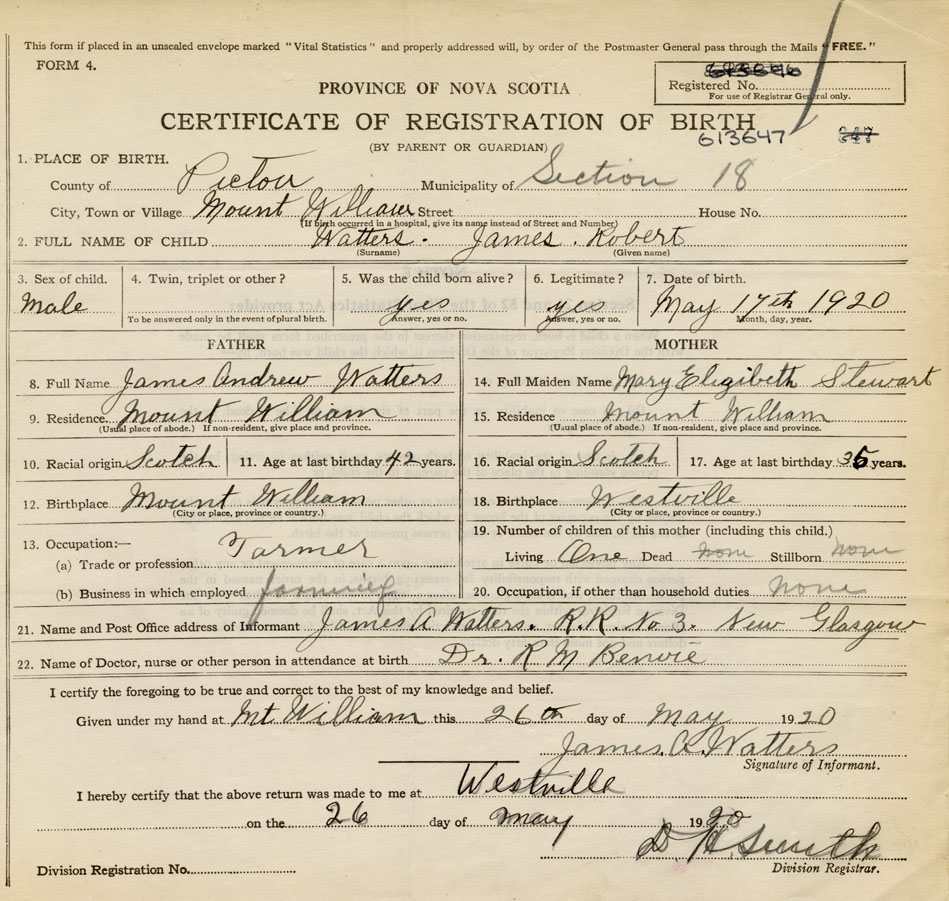 This form if placed in an unsealed envelope marked "Vital Statistics" and properly addressed will, by order of the Postmaster General pass through the Mails "FREE."
FORM 4.
PROVINCE OF NOVA SCOTIA
Registered No.
For use of Registrar General only.
CERTIFICATE OF REGISTRATION OF BIRTH
(BY PARENT OR GUARDIAN)
613647
1. PLACE OF BIRTH.
County of Pictou Municipality of Section 18
City, Town or Village Mount William Street House No.
(If birth occurred in a hospital, give its name instead of Street and Number)
2. FULL NAME OF CHILD Watters. James. Robert
(Surname) (Given name)
3. Sex of child. 4. Twin, triplet or other? 5. Was the child born alive? 6. Legitimate? 7. Date of birth.
Male yes yes May 17th 1920
To be answered only in the event of plural birth. Answer, yes or no. Answer, yes or no. Month, day, year.
FATHER
8. Full Name James Andrew Watters
9. Residence. Mount William
(Usual place of abode.) If non-resident, give place and province.
10. Racial origin Scotch 11. Age at last birthday 42 years.
12. Birthplace Mount William
(City or place, province or country.)
13. Occupation:—
(a) Trade or profession Farmer
(b) Business in which employed farming
MOTHER
14. Full Maiden Name Mary Elizibeth Stewart
15. Residence Mount William
(Usual place of abode.) If non-resident, give place and province.
16. Racial origin Scotch 17. Age at last birthday 35 years.
18. Birthplace Westville
(City or place, province or country.)
19. Number of children of this mother (including this child.)
Living One Dead none Stillborn none
20. Occupation, if other than household duties none
21. Name and Post Office address of Informant James A Watters. R.R. No 3. New Glasgow
22. Name of Doctor, nurse or other person in attendance at birth Dr. R M Benvie
I certify the foregoing to be true and correct to the best of my knowledge and belief.
Given under my hand at Mt. William this 26th day of May 1920
James. A. Watters
Signature of Informant.
I hereby certify that the above return was made to me at Westville
on the 26 day of May 1920
D H Smith
Division Registration No. Division Registrar.